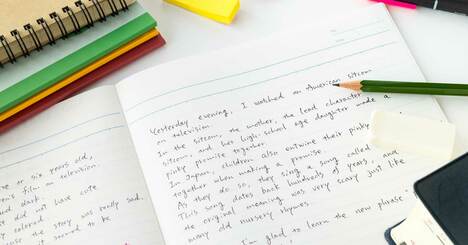 e or six years old,
ens film on television.
ed dark.
did not have cute
colored
cause the story was really sad.
it seemed to be
Yesterday evening, I watched an American sitcom
on television.
In the sitcom, the mother, the lead character
sitcom, and her high-school age daughter made a
pinky promise together.
In Japan, children also entwine their pinky
together when making a promise.
As they do so, they sing a song called
This song dates back hundreds of years, and
the original meaning was very scary just like
many old nursery rhymes.
I'm glad to learn the new phrase